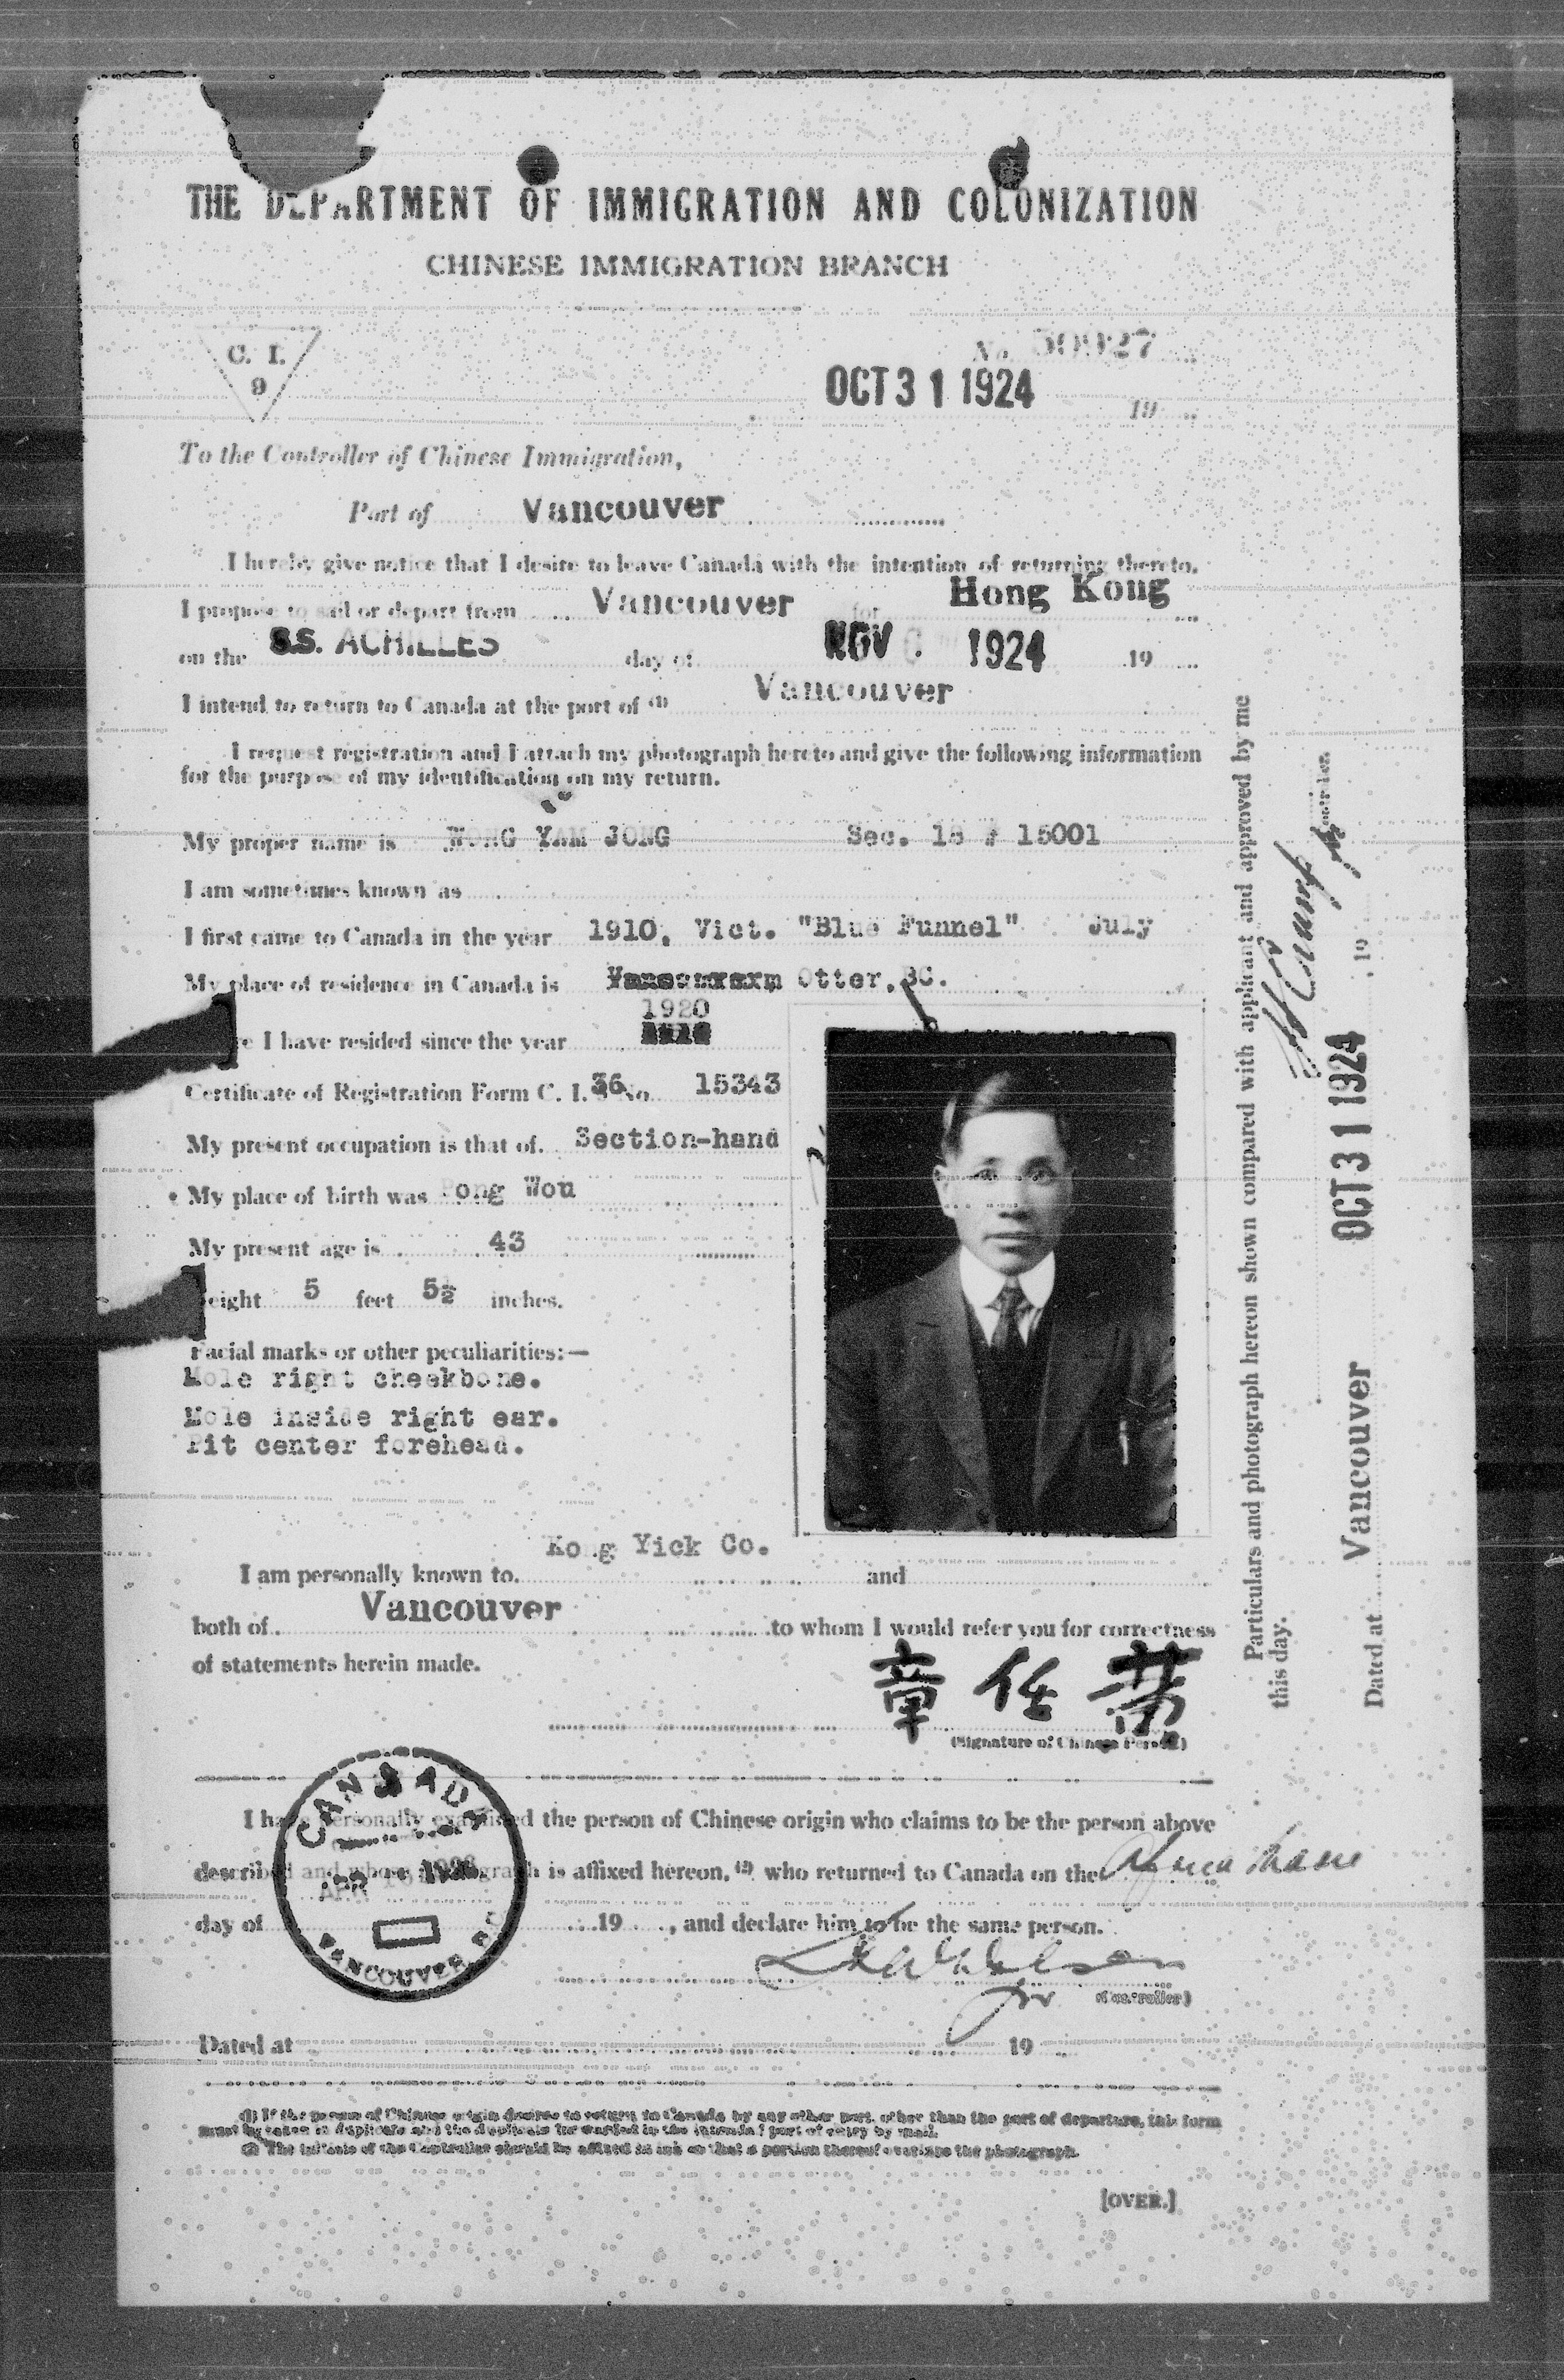 THE DEPARTMENT OF IMMIGRATION AND COLONIZATION
CHINESE IMMIGRATION BRANCH
C. I.
9
No.
OCT 31 1924 19
To the Controller of Chinese Immigration,
Port of Vancouver
I hereby give notice that I desire to leave Canada with the intention of returning thereto.
I propose to sail or depart from Vancouver for Hong Kong
on the S.S. ACHILLES day of NOV 1924 19
I intend to return to Canada at the port of (1) Vancouver
I request registration and I attach my photograph hereto and give the following information
for the purpose of my identification on my return.
My proper name is WONG YAM JONG Sec. 18 # 15001
I am sometimes known as
I first came to Canada in the year 1910, Vict. "Blue Funnel" July
My place of residence in Canada is Otter, BC.
1920
I have resided since the year
Certificate of Registration Form C. I. 36 No. 15343
My present occupation is that of. Section-hand
My place of birth was Wou
My present age is 43
eight 5 feet 5½ inches.
Facial marks or other peculiarities:—
Mole right cheekbone.
Mole inside right ear.
Pit center forehead.
Kong Yick Co.
I am personally known to and
Vancouver
both of to whom I would refer you for correctness
of statements herein made.
章任
(Signature of Chinese Person)
I have personally examined the person of Chinese origin who claims to be the person above
described and whose photograph is affixed hereon, (2) who returned to Canada on the
day of 19 , and declare him to be the same person.
CANADA
VANCOUVER
for
(Controller)
Dated at 19
(1) If the person of Chinese origin desires to return to Canada by any other port, other than the port of departure, this form
must be taken in duplicate and the duplicate forwarded to the intended port of entry by mail.
(2) The initials of the Controller should be affixed in ink so that a portion thereof overlaps the photograph.
[OVER.]
Particulars and photograph hereon shown compared with applicant and approved by me
this day.
Controller.
Dated at Vancouver OCT 31 1924 , 19